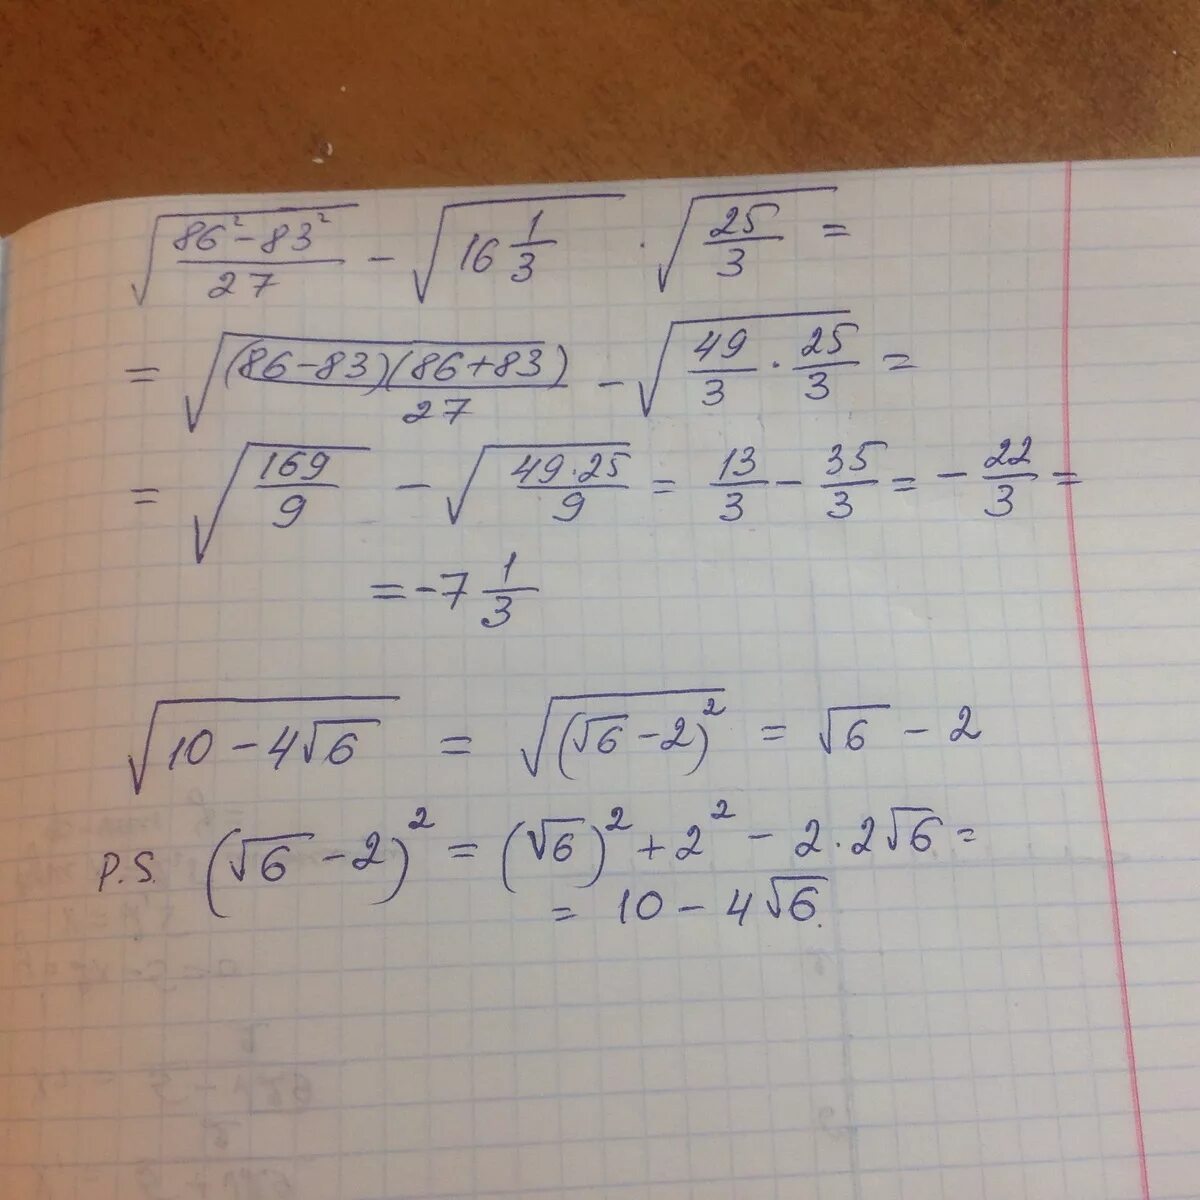 √((86² - 83²)/27) - √(16 1/3) · √(25/3) =
= √((86 - 83)(86 + 83)/27) - √(49/3 · 25/3) =
= √(169/9) - √(49·25/9) = 13/3 - 35/3 = - 22/3 =
= -7 1/3
√(10 - 4√6) = √((√6 - 2)²) = √6 - 2
P.S. (√6 - 2)² = (√6)² + 2² - 2·2√6 =
= 10 - 4√6.